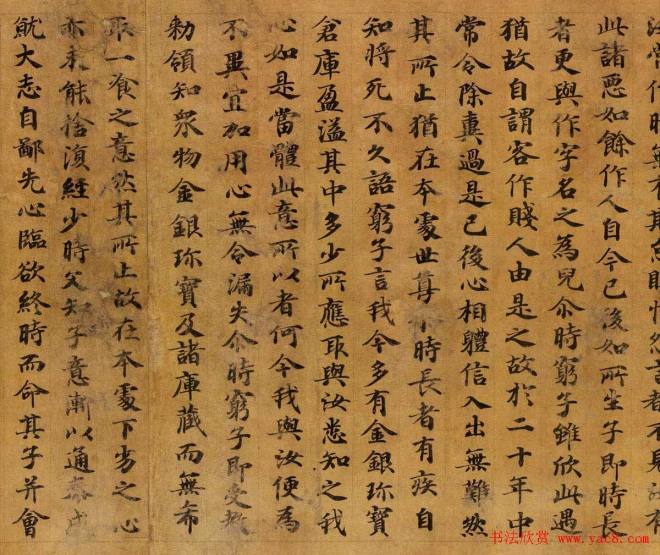 汝常作時無有欺怠瞋恨怨言者不見汝有
此諸惡如餘作人自今已後如所生子即時長
者更與作字名之為兒尒時窮子雖欣此遇
猶故自謂客作賤人由是之故於二十年中
常令除糞過是已後心相軆信入出無難然
其所止猶在本處世尊尒時長者有疾自
知將死不久語窮子言我今多有金銀珎寶
倉庫盈溢其中多少所應取與汝悉知之我
心如是當體此意所以者何今我與汝便為
不異宜加用心無令漏失尒時窮子即受教
勑領知眾物金銀珎寶及諸庫藏而無希
取一飡之意然其所止故在本處下劣之心
亦未能捨復經少時父知子意漸以通泰成
就大志自鄙先心臨欲終時而命其子并會
书法欣赏 www.yac8.com